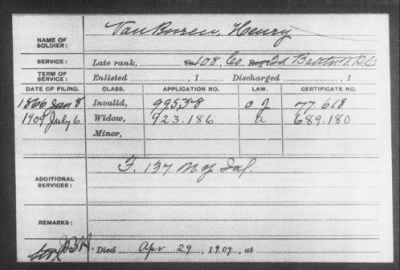 NAME OF SOLDIER: Van Buren, Henry
SERVICE: Late rank, 108, Co 2d Batt'n V.R.C.
TERM OF SERVICE: Enlisted , 1 Discharged , 1
DATE OF FILING. CLASS. APPLICATION NO. LAW. CERTIFICATE NO.
1866 Jan 8 Invalid, 99538 77 618
1909 July 6 Widow, 923.186 689.180
Minor,
ADDITIONAL SERVICES: F. 137 N.Y. Inf.
REMARKS:
Died Apr 29, 1909, at